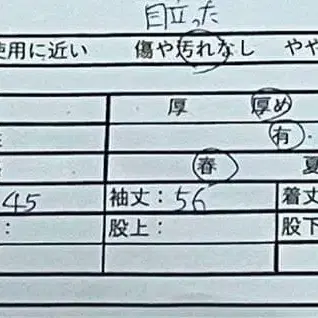 目立った
使用に近い 傷や汚れなし やや
厚 厚め
有・
春 夏
45 袖丈：56 着丈
： 股上： 股下